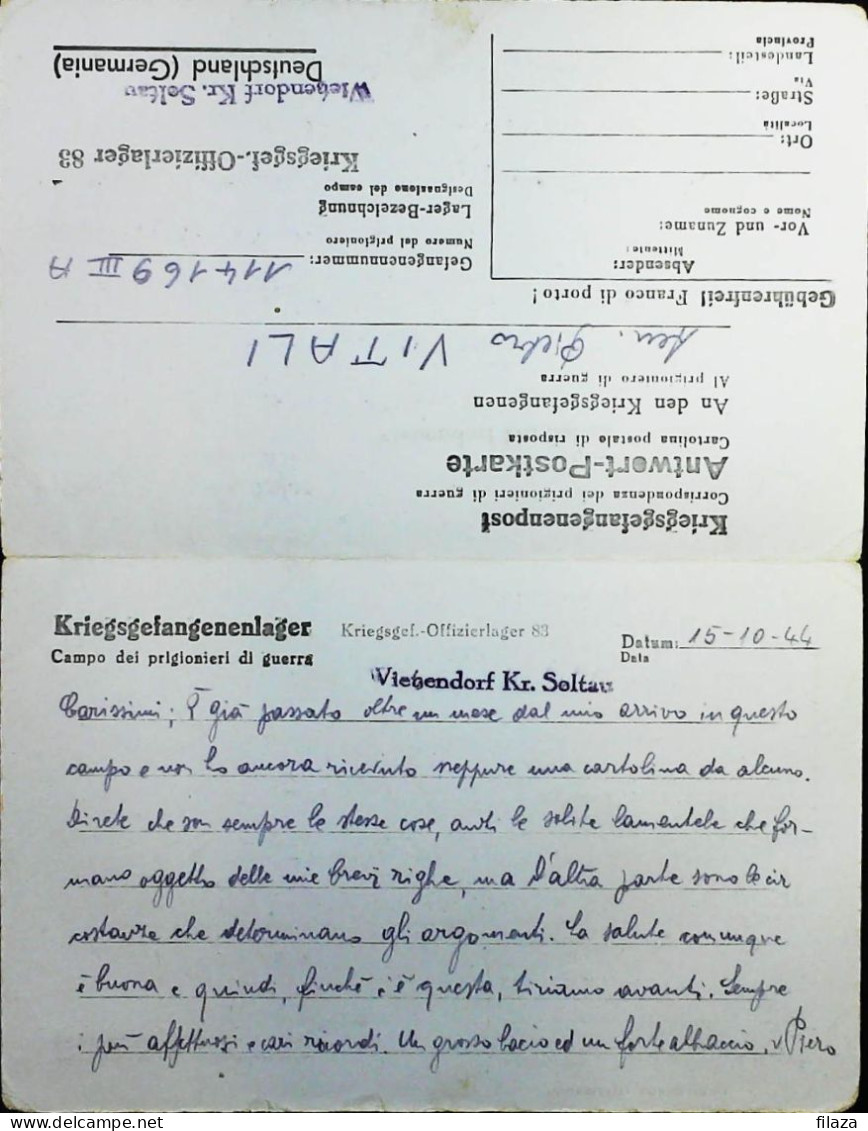 Kriegsgefangenenpost
Corrispondenza dei prigionieri di guerra
Antwort-Postkarte
Cartolina postale di risposta
An den Kriegsgefangenen
Al prigioniero di guerra
Pietro VITALI
Gebührenfrei! Franco di porto!
Absender:
Mittente:
Vor- und Zuname:
Nome e cognome
Ort:
Località
Straße:
Via
Landesteil:
Provincia
Gefangenennummer: 114169 III A
Numero del prigioniero
Lager-Bezeichnung
Designazione del campo
Kriegsgef.-Offizierlager 83
Wietzendorf Kr. Soltau
Deutschland (Germania)
Kriegsgefangenenlager
Campo dei prigionieri di guerra
Kriegsgef.-Offizierlager 83
Datum: 15-10-44
Data
Wietzendorf Kr. Soltau
Carissimi; È già passato oltre un mese dal mio arrivo in questo
campo e non ho ancora ricevuto neppure una cartolina da alcuno.
Direte che son sempre le stesse cose, anzi le solite lamentele che for-
mano oggetto delle mie brevi righe, ma d'altra parte sono le cir
costanze che determinano gli argomenti. La salute comunque
è buona e quindi, finché c'è questa, tiriamo avanti. Sempre
i più affettuosi e cari ricordi. Un grosso bacio ed un forte abbraccio, Piero
filaza